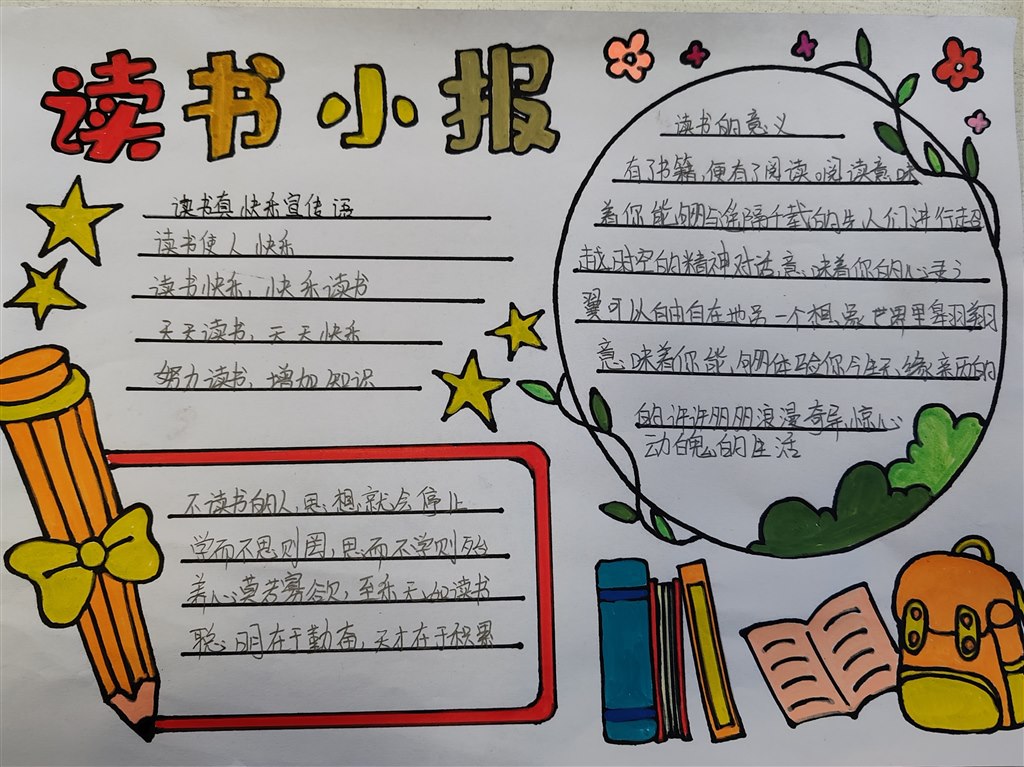 读书小报
读书真快乐宣传语
读书使人快乐
读书快乐，快乐读书
天天读书，天天快乐
努力读书，增加知识
不读书的人，思想就会停止
学而不思则罔，思而不学则殆
养心莫若寡欲，至乐无如读书
聪明在于勤奋，天才在于积累
读书的意义
有了书籍，便有了阅读。阅读意味
着你能够与你隔千载的先人们进行超
越时空的精神对话，意味着你的心灵
翼可以自由自在地另一个想象世界里翱翔
意味着你能够体验你今生不缘亲历的
的许许多多浪漫奇异惊心
动魄的生活